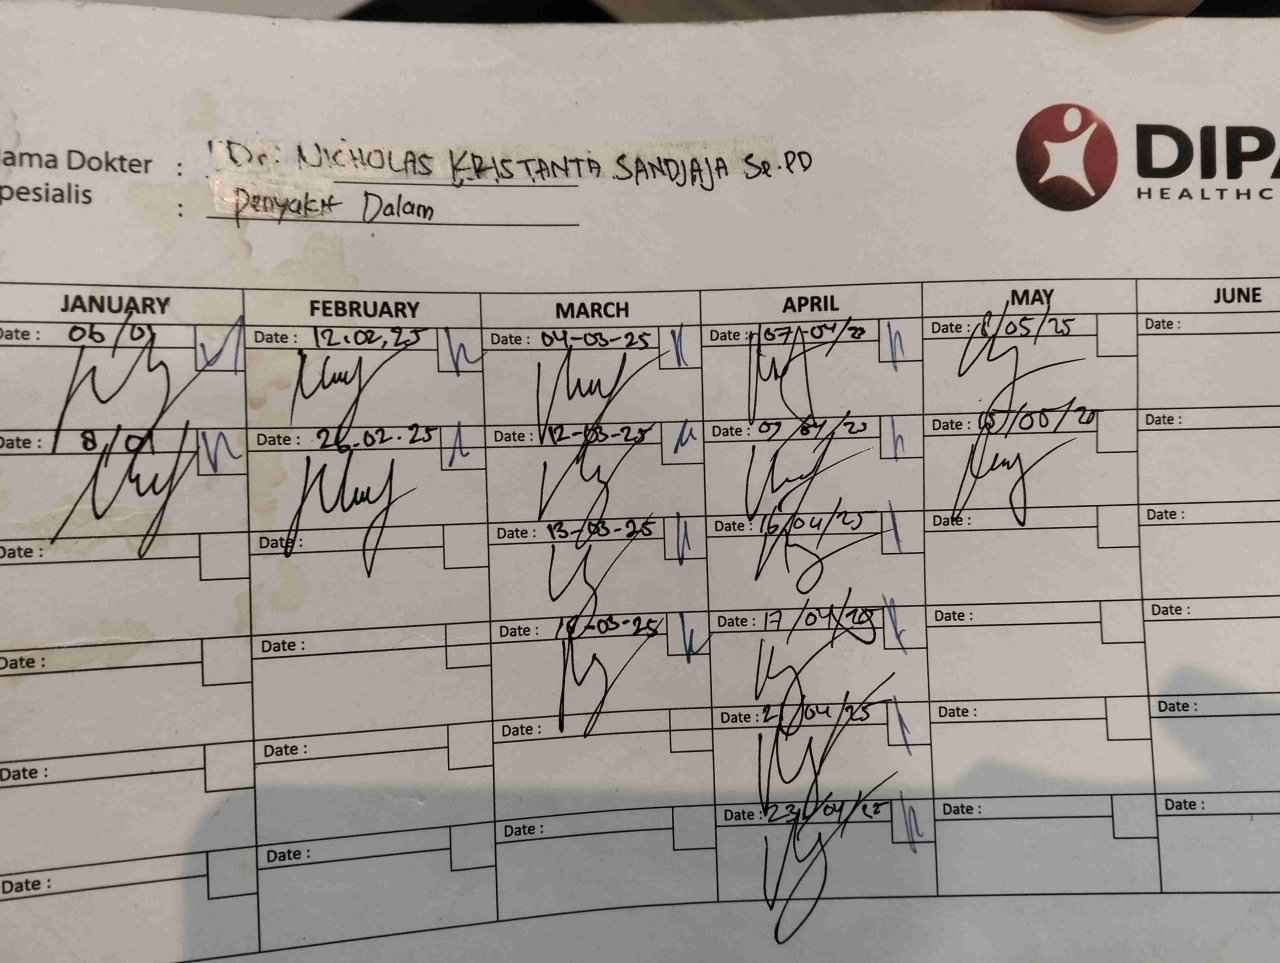 ama Dokter : Dr. NICHOLAS KRISTANTA SANDJAJA Sp.PD
pesialis : Penyakit Dalam
DIPA
HEALTHC
JANUARY FEBRUARY MARCH APRIL MAY JUNE
Date : 06/01 Date : 12.02.25 Date : 04-03-25 Date : 07-04/25 Date : /05/25 Date :
Date : 8/01 Date : 26.02.25 Date : 12-03-25 Date : 09/04/25 Date : Date :
Date : Date : Date : 13-03-25 Date : 16/04/25 Date : Date :
Date : Date : Date : Date : 17/04/25 Date : Date :
Date : Date : Date : Date : 21/04/25 Date : Date :
Date : Date : Date : Date : 23/04/25 Date : Date :